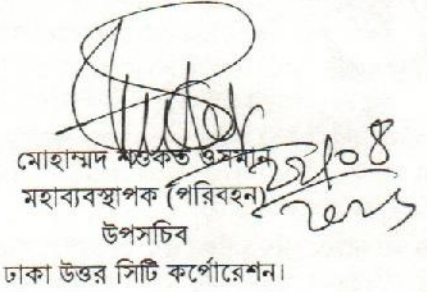 মোহাম্মদ শওকত ওসমান
মহাব্যবস্থাপক (পরিবহন)
উপসচিব
ঢাকা উত্তর সিটি কর্পোরেশন।